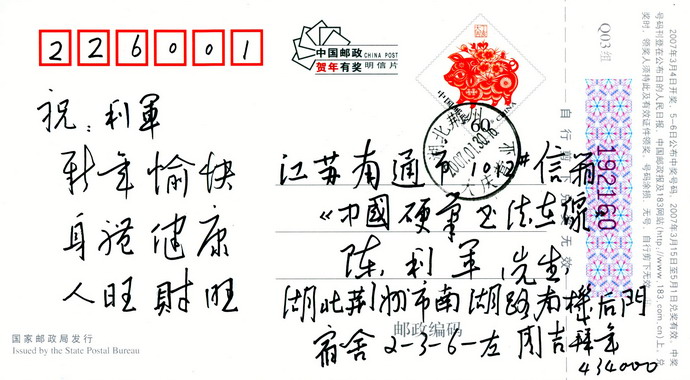 226001
中国邮政 CHINA POST
贺年有奖 明信片
中国邮政
CHINA
60
湖北荆州
2007.01.30.16
祝：利軍
新年愉快
身體健康
人旺財旺
江苏南通市102#信箱
《中國硬筆书法在線》
陈利軍 先生
湖北荆州市南湖路
后門
宿舍2-3-6-左 周吉 拜年
434000
邮政编码
国家邮政局发行
Issued by the State Postal Bureau
Q03组
192160
2007年3月4日开奖，5-6日公布中奖号码，2007年3月15日至5月1日兑奖有效。中奖
号码刊登在公布日的人民日报、中国邮政报及183网站(http://www.183.com.cn)上。兑
奖时，须奖人须持此及有效证件领奖，号码涂损、无号，自行剪下无效。
自行剪下无效